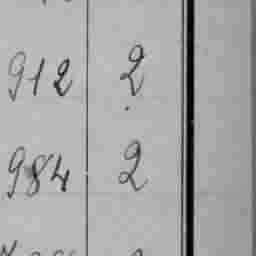 912 2
984 2